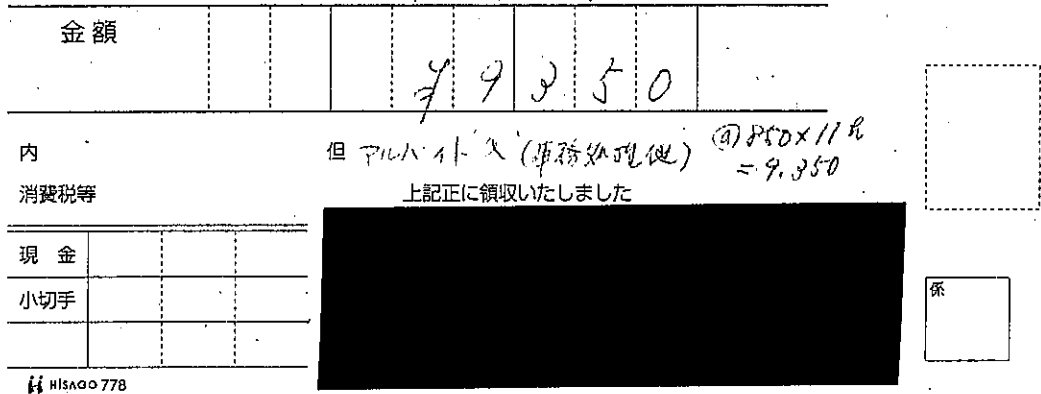 金額
¥9350
内
但 アルバイト代(事務処理他) @850×11h
=9,350
消費税等
上記正に領収いたしました
現金
小切手
係
HISAGO 778